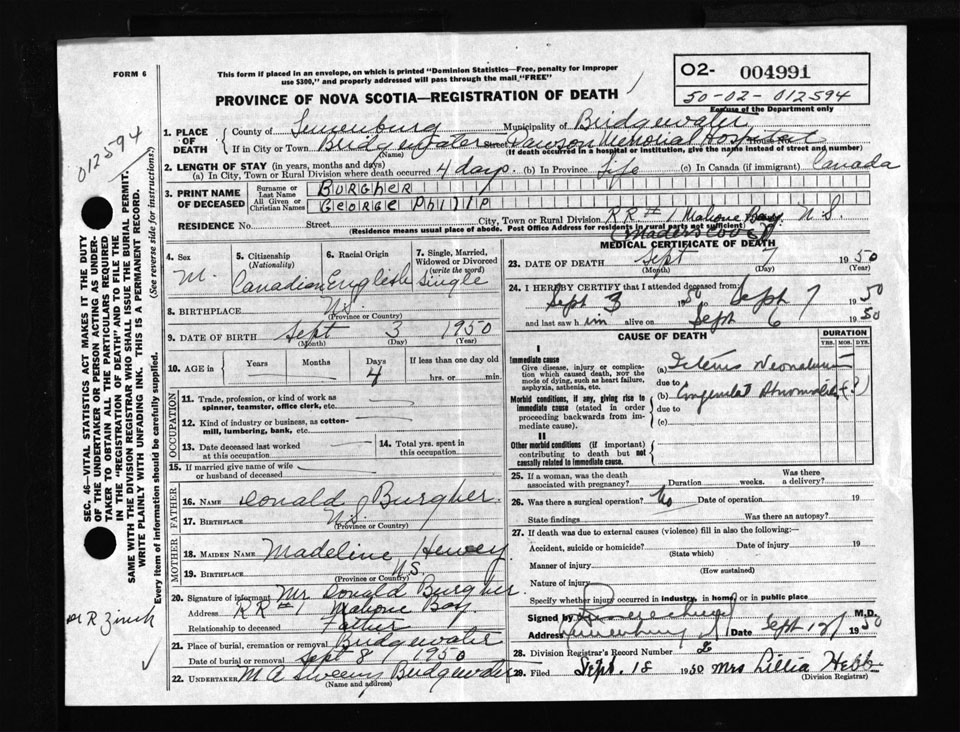 FORM 6
This form if placed in an envelope, on which is printed "Dominion Statistics—Free, penalty for improper
use $300," and properly addressed will pass through the mail "FREE"
PROVINCE OF NOVA SCOTIA—REGISTRATION OF DEATH
O2- 004991
50-02-012594
For use of the Department only
012594
SEC. 46—VITAL STATISTICS ACT MAKES IT THE DUTY
OF THE UNDERTAKER OR PERSON ACTING AS UNDER-
TAKER TO OBTAIN ALL THE PARTICULARS REQUIRED
IN THE "REGISTRATION OF DEATH" AND TO FILE THE
SAME WITH THE DIVISION REGISTRAR WHO SHALL ISSUE THE BURIAL PERMIT.
WRITE PLAINLY WITH UNFADING INK. THIS IS A PERMANENT RECORD.
Every item of information should be carefully supplied. (See reverse side for instructions.)
1. PLACE OF DEATH
County of Lunenburg Municipality of Bridgewater
If in City or Town Bridgewater Street Dawson Memorial Hospital House No.
(Name) (If death occurred in a hospital or institution, give the name instead of street and number)
2. LENGTH OF STAY (in years, months and days)
(a) In City, Town or Rural Division where death occurred 4 days (b) In Province Life (c) In Canada (if immigrant) Canada
3. PRINT NAME OF DECEASED
Surname or Last Name BURGHER
All Given or Christian Names GEORGE PHILLIP
RESIDENCE No. Street City, Town or Rural Division RR #1 Mahone Bay N.S.
(Residence means usual place of abode. Post Office Address for residents in rural parts not sufficient)
(Maders Cove)
4. Sex
M.
5. Citizenship (Nationality)
Canadian
6. Racial Origin
English
7. Single, Married, Widowed or Divorced (write the word)
Single
8. BIRTHPLACE N.S.
(Province or Country)
9. DATE OF BIRTH Sept 3 1950
(Month) (Day) (Year)
10. AGE in Years Months Days 4 If less than one day old
hrs. or min.
OCCUPATION
11. Trade, profession, or kind of work as
spinner, teamster, office clerk, etc.
12. Kind of industry or business, as cotton-
mill, lumbering, bank, etc.
13. Date deceased last worked
at this occupation
14. Total yrs. spent in
this occupation
15. If married give name of wife
or husband of deceased
FATHER
16. NAME Donald Burgher
17. BIRTHPLACE N.S.
(Province or Country)
MOTHER
18. MAIDEN NAME Madeline
19. BIRTHPLACE N.S.
(Province or Country)
20. Signature of informant Mr. Donald Burgher
Address RR #1 Mahone Bay
Relationship to deceased Father
21. Place of burial, cremation or removal Bridgewater
Date of burial or removal Sept 8 1950
22. UNDERTAKER M A Sweeny Bridgewater
(Name and address)
MEDICAL CERTIFICATE OF DEATH
23. DATE OF DEATH Sept 7 1950
(Month) (Day) (Year)
24. I HEREBY CERTIFY that I attended deceased from:
Sept 3 1950 Sept 7 1950
and last saw him alive on Sept 6 1950
CAUSE OF DEATH
DURATION
YRS. MOS. DYS.
I
Immediate cause
Give disease, injury or complica-
tion which caused death, not the
mode of dying, such as heart failure,
asphyxia, asthenia, etc.
(a) Icterus Neonatorum
due to
Morbid conditions, if any, giving rise to
immediate cause (stated in order
proceeding backwards from im-
mediate cause).
(b) Congenital Abnormalities (?)
due to
(c)
II
Other morbid conditions (if important)
contributing to death but not
causally related to immediate cause.
25. If a woman, was the death
associated with pregnancy? Duration weeks. Was there
a delivery?
26. Was there a surgical operation? No Date of operation 19
State findings Was there an autopsy?
27. If death was due to external causes (violence) fill in also the following:—
Accident, suicide or homicide? Date of injury 19
(State which)
Manner of injury
(How sustained)
Nature of injury
Specify whether injury occurred in industry, in home, or in public place
Signed by M.D.
Address Lunenburg Date Sept 12 1950
28. Division Registrar's Record Number
29. Filed Sept. 18 1950 Mrs Lillia Hebb
(Division Registrar)